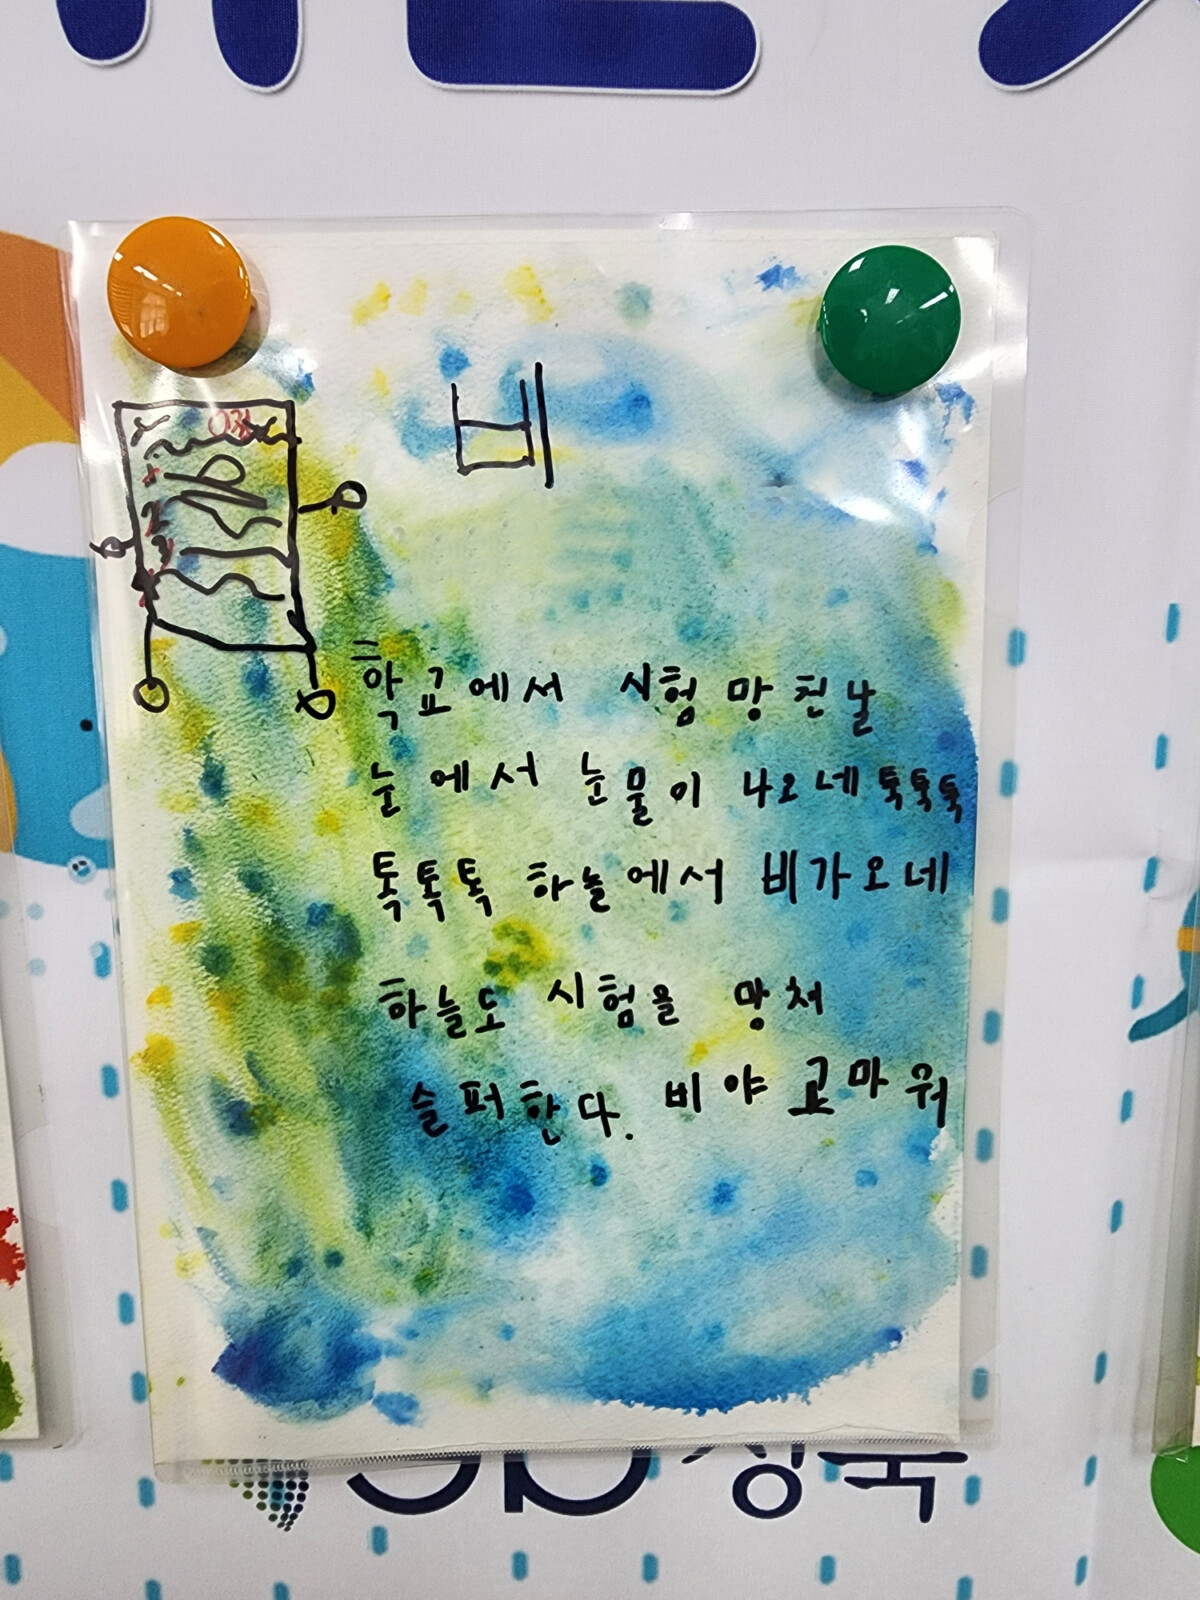 비
0점
학교에서 시험 망친날
눈에서 눈물이 나오네 톡톡톡
톡톡톡 하늘에서 비가오네
하늘도 시험을 망쳐
슬퍼한다. 비야 고마워